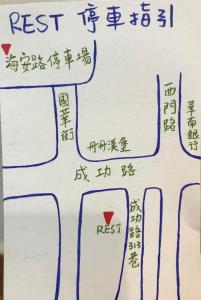 REST 停車指引
海安路停車場
國華街
西門路
華南銀行
丹丹漢堡
成功路
成功路313巷
REST